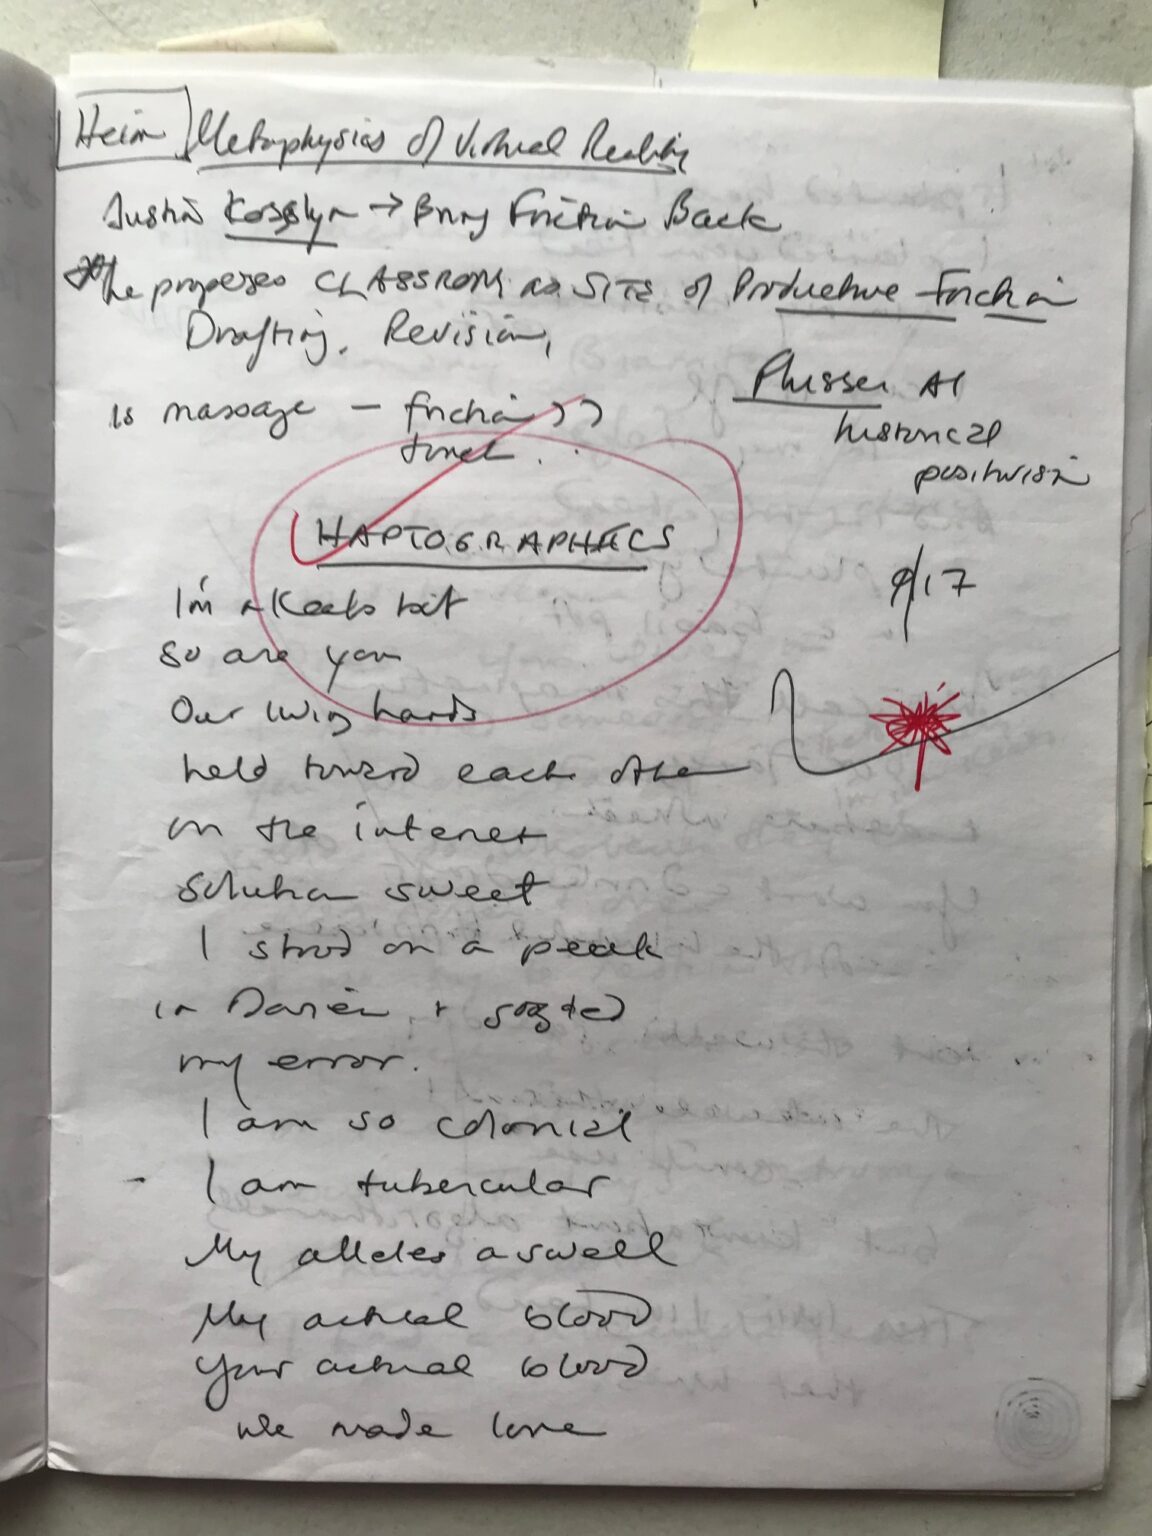 Heim Metaphysics of Virtual Reality
Justin Kosslyn → Bring Friction Back
He proposes CLASSROOM as SITE of Productive Friction
Drafting, Revision,
Flusser AI
historical
positivism
is massage — friction??
touch...
HAPTOGRAPHICS
9/17
I'm a Keats bot
so are you
Our living hands
held toward each other
on the internet
solution sweet
I stood on a peak
in Darien +
my error.
I am so colonial
I am tubercular
My alleles aswell
My actual blood
Your actual blood
We made love